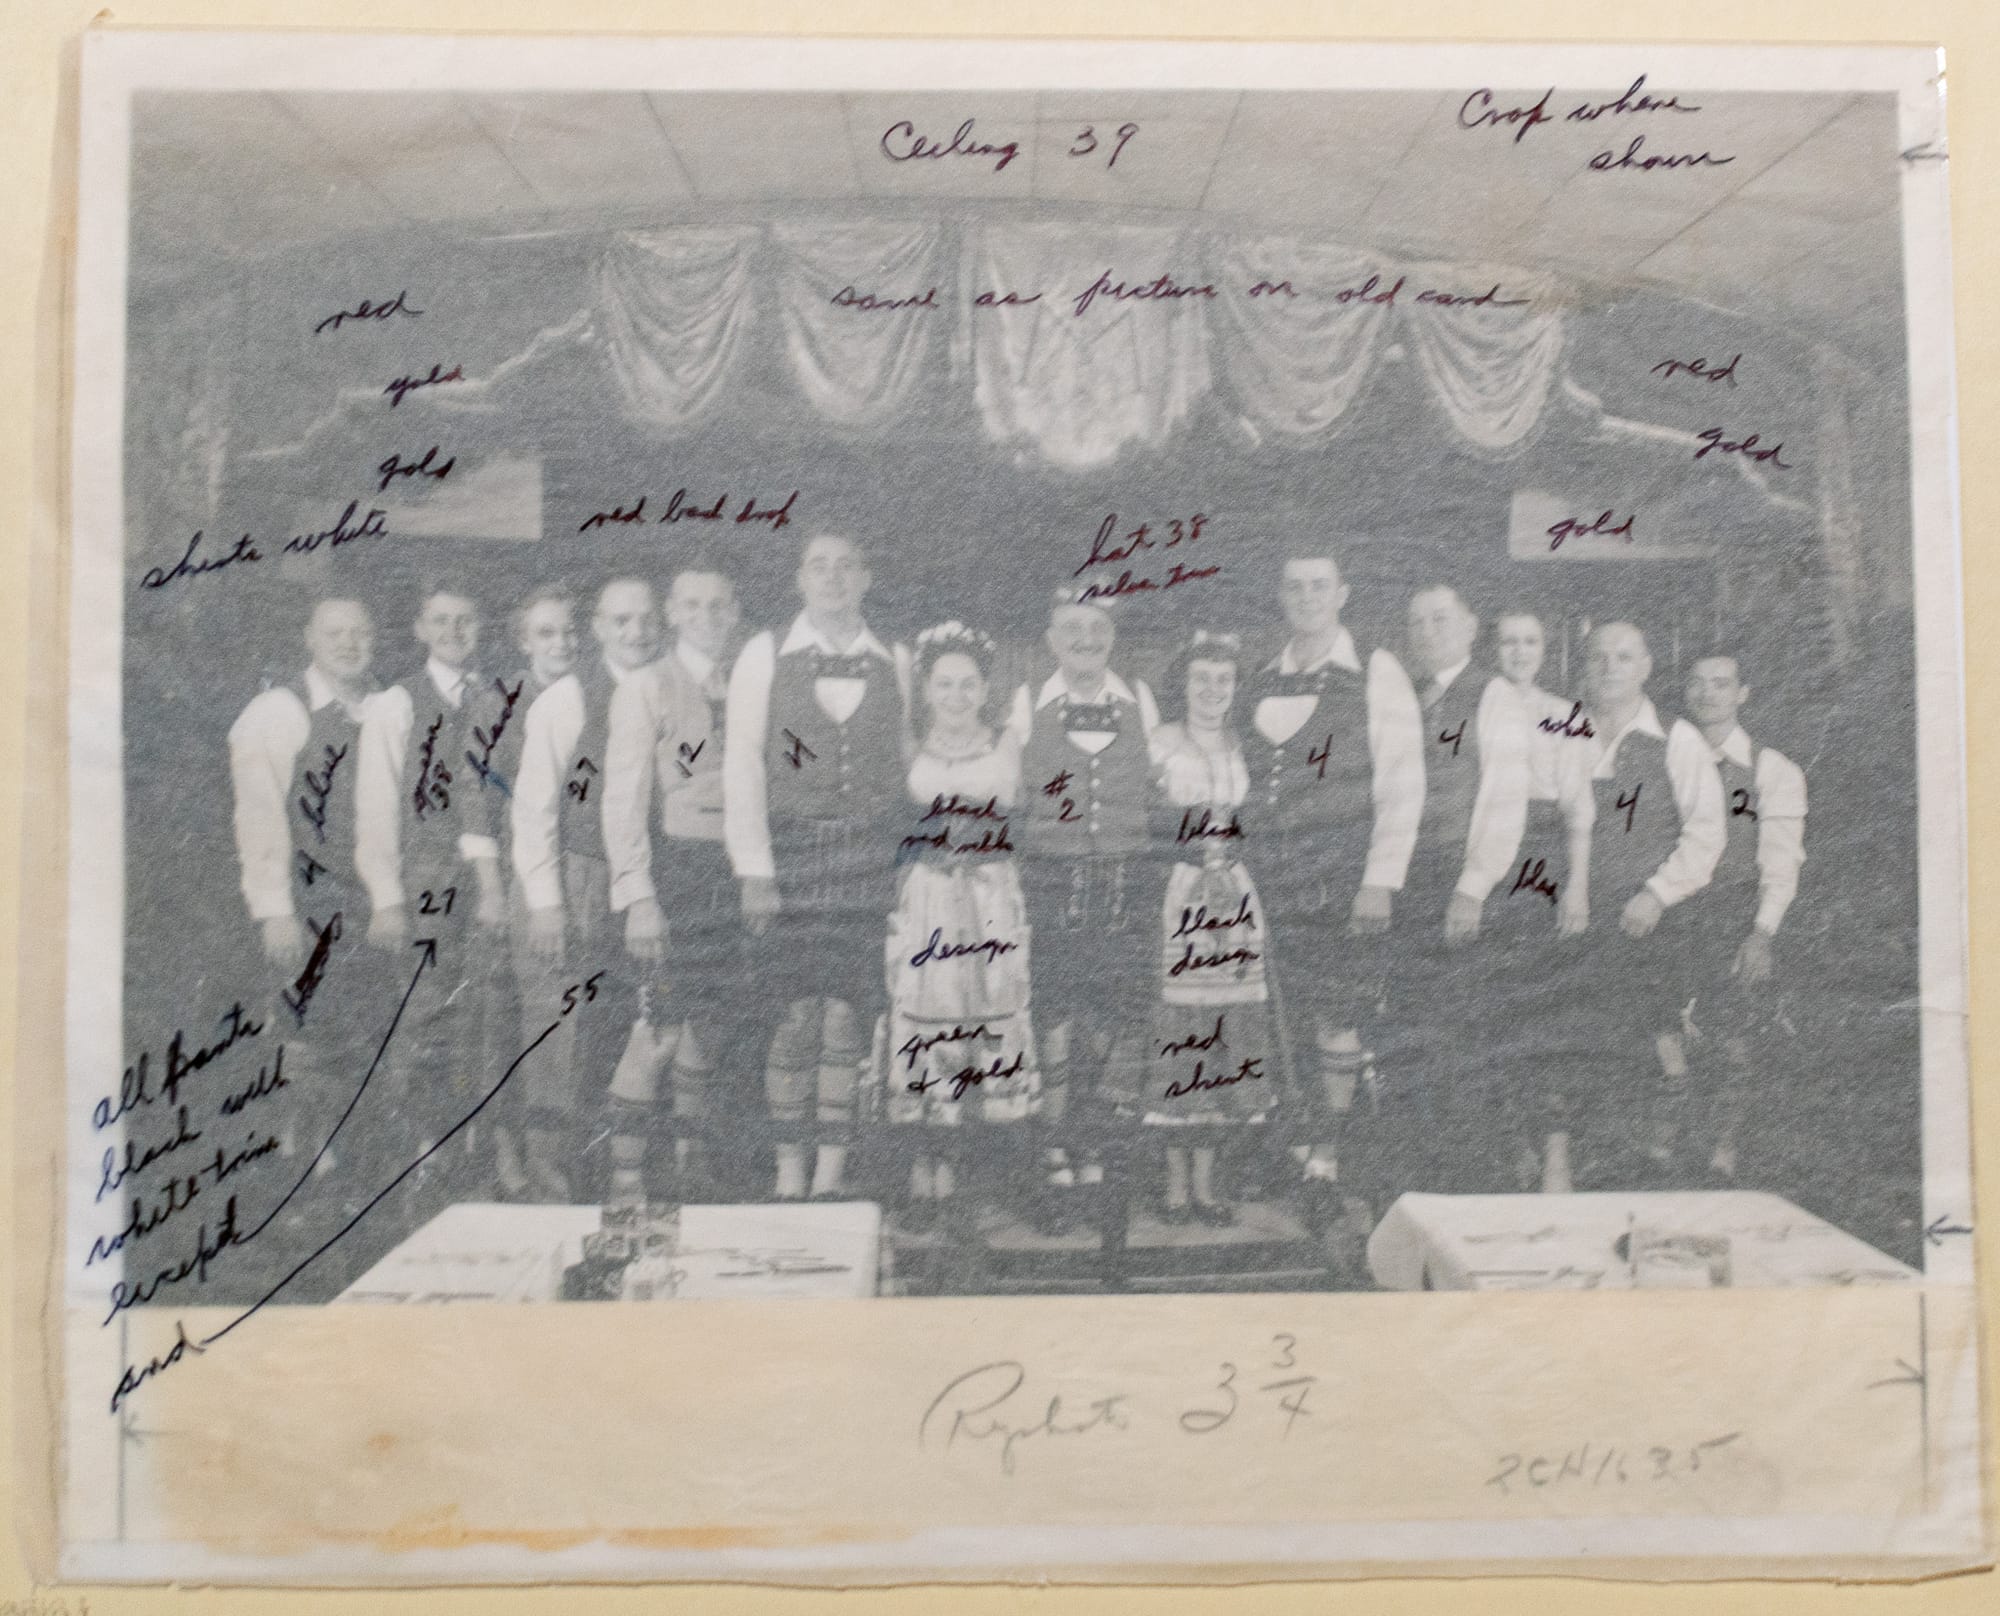 Crop where
shown
Ceiling 39
same as picture on old card
red
gold
gold
shirts white
red back drop
hat 38
silver trim
red
gold
gold
4 blue
green
38
black
27
12
4
black
red
#
2
black
4
4
white
blue
4
2
27
55
design
green
& gold
black
design
red
skirt
all pants
black with
white trim
except
and
3 3/4
2CH1635